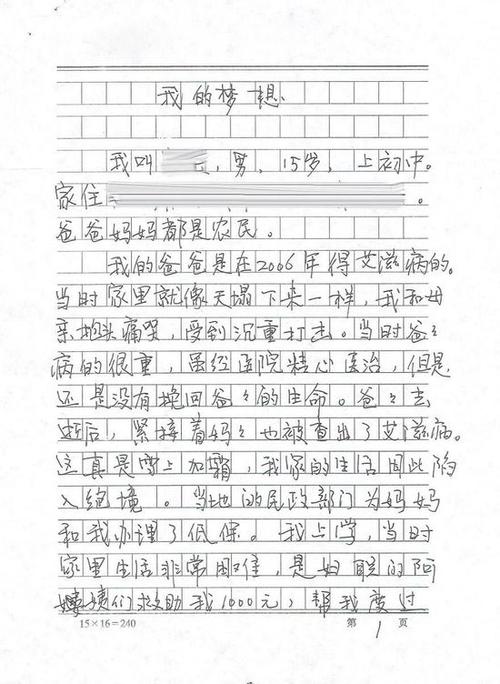 我的梦想
我叫，男，15岁，上初中。
家住。
爸爸妈妈都是农民。
我的爸爸是在2006年得艾滋病的。
当时家里就像天塌下来一样，我和母
亲抱头痛哭，受到沉重打击。当时爸々
病的很重，虽经医院精心医治，但是
还是没有挽回爸々的生命。爸々去
逝后，紧接着妈々也被查出了艾滋病。
这真是雪上加霜，我家的生活因此陷
入绝境。当地的民政部门为妈妈
和我办理了低保。我上学，当时
家里生活非常困难，是妇联的阿
姨们救助我1000元，帮我度过
15×16=240 第1页